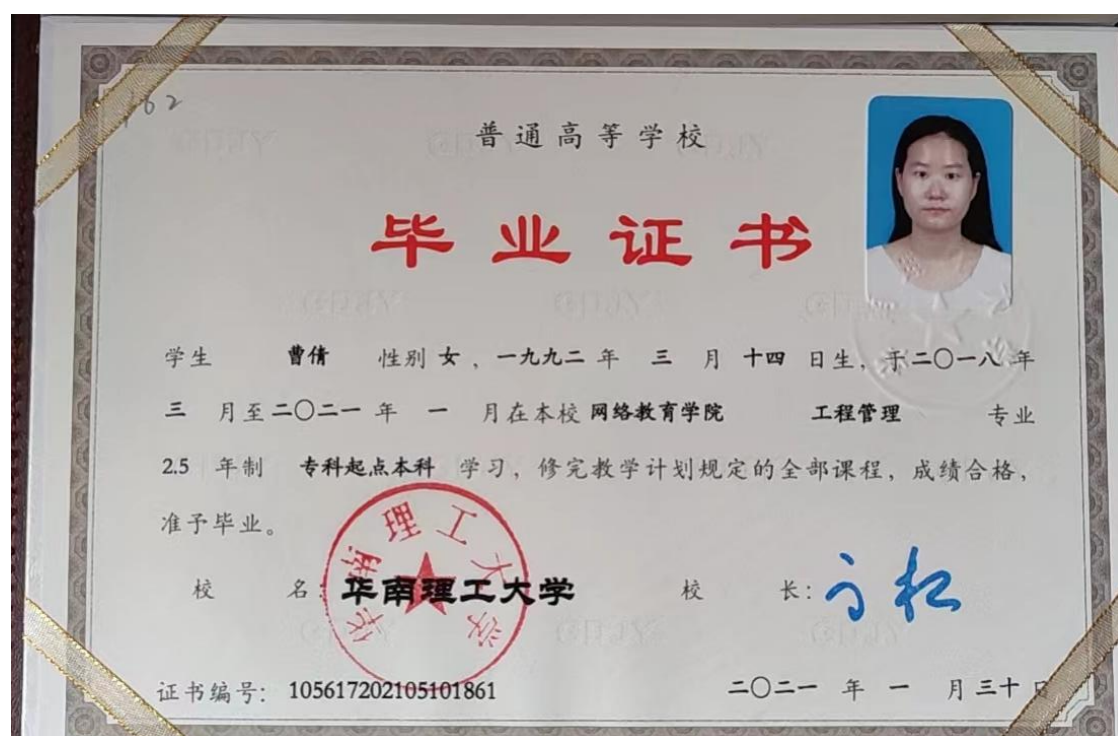 162
普通高等学校
毕业证书
学生 曹倩 性别 女 , 一九九二 年 三 月 十四 日生, 于二〇一八 年
三 月至二〇二一 年 一 月在本校 网络教育学院 工程管理 专业
2.5 年制 专科起点本科 学习, 修完教学计划规定的全部课程, 成绩合格,
准予毕业。
校 名: 华南理工大学 校 长:
华南理工大学
证书编号: 105617202105101861 二〇二一 年 一 月 三十 日